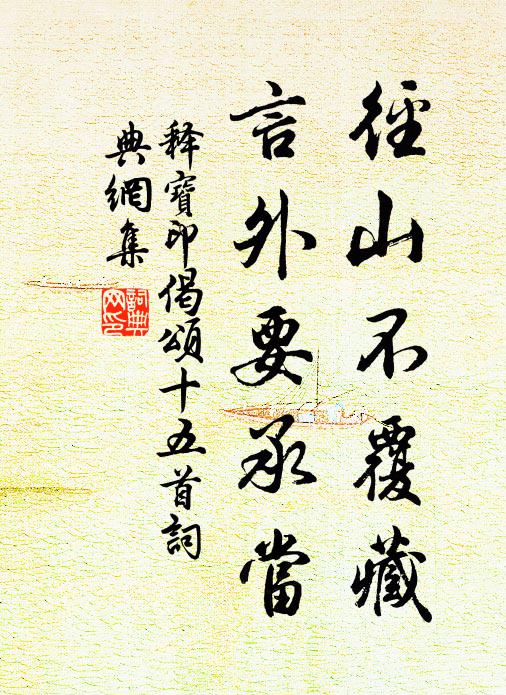 徑山不覆藏
言外要承當
释寶印偈頌十五首詞
典網集
詞典
网印